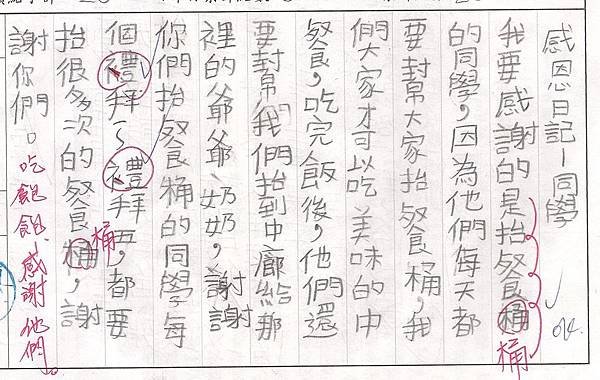 感恩日記—同學
我要感謝的是抬餐桶
桶
的同學，因為他們每天都
要幫大家抬餐桶，我
們大家才可以吃美味的中
餐，吃完飯後，他們還
要幫我們抬到中廊給那
裡的爺爺、奶奶，謝謝
你們抬餐桶的同學每
個禮拜一~禮拜五，都要
抬很多次的餐桶，謝
桶
謝你們。吃飽飽、感謝他們。